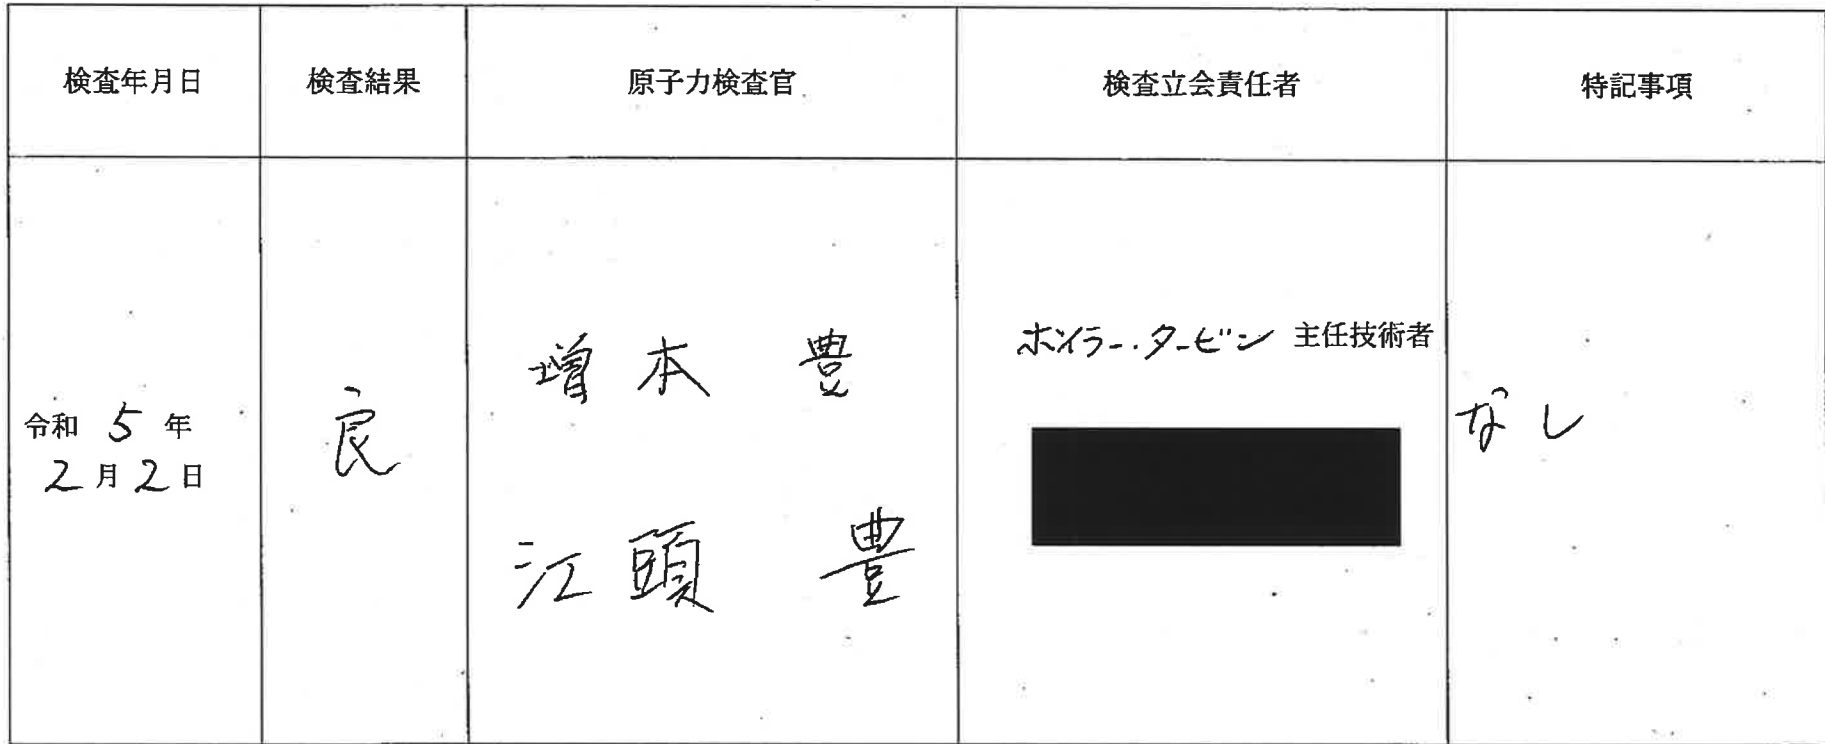 検査年月日
検査結果
原子力検査官
検査立会責任者
特記事項
令和 5 年
2月2日
良
増本 豊
江頭 豊
ボイラー・タービン 主任技術者
なし